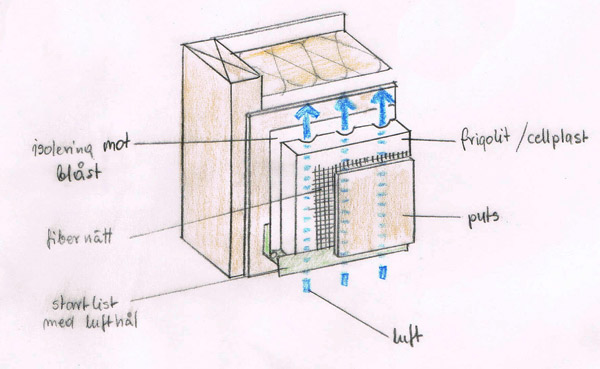 isolering mot
blåst
frigolit/cellplast
fibernätt
puts
startlist
med lufthål
luft